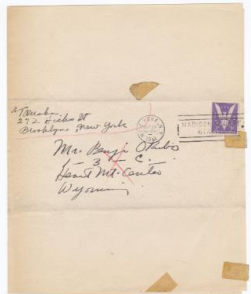 272 Hicks St
Brooklyn, New York
Mr. Benji Okubo
1 - 3 - C.
Heart Mt. Center
Wyoming